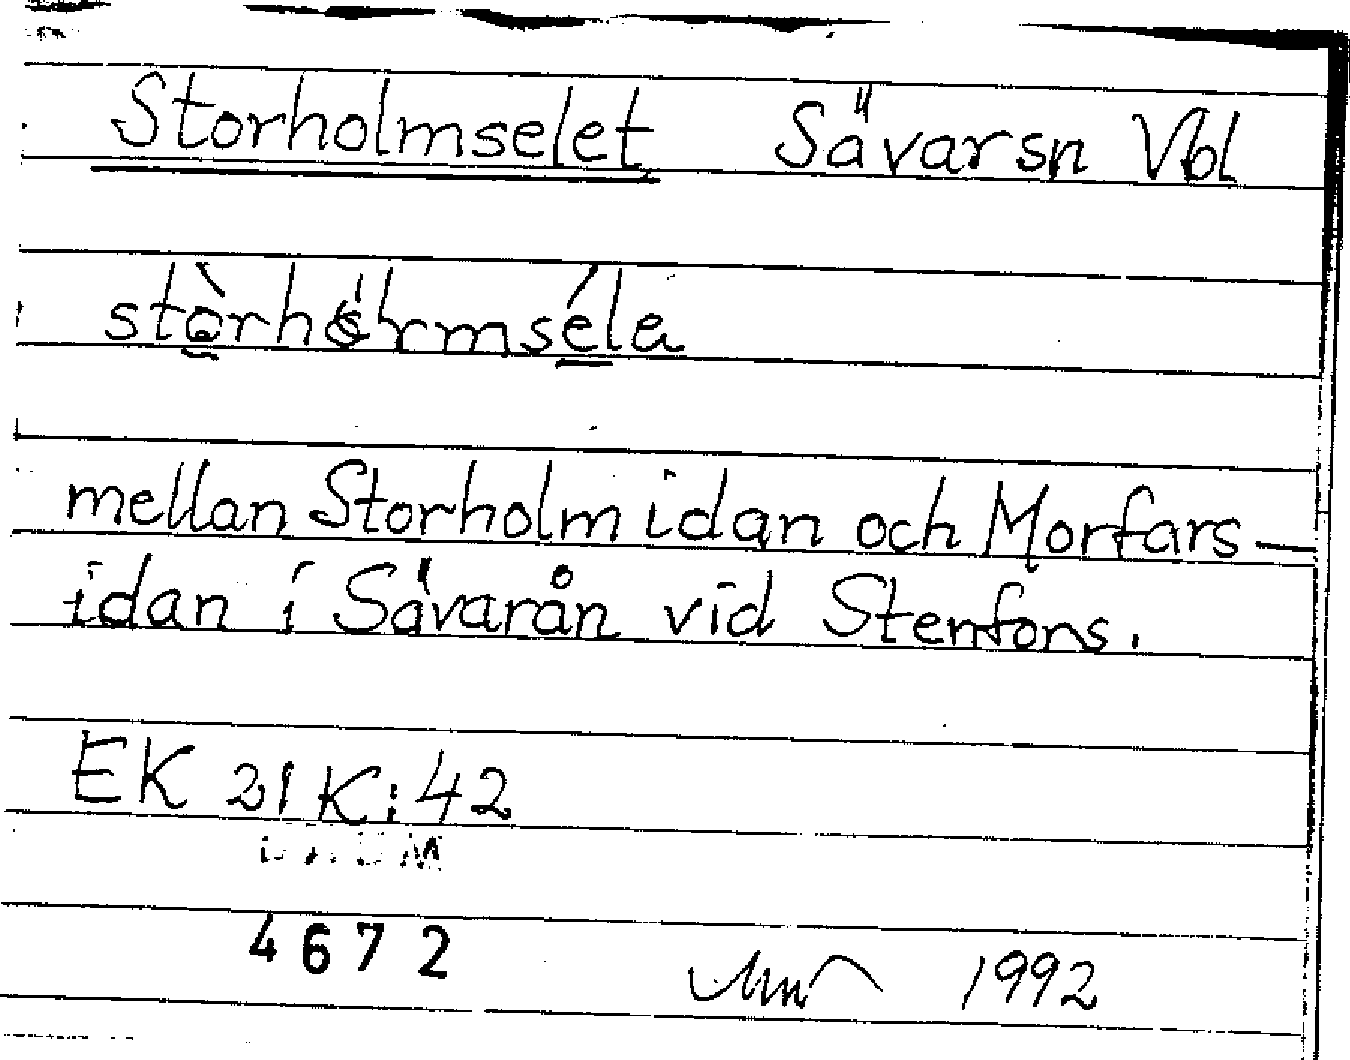 Storholmselet Sävarsn Vbl
mellan Storholmidan och Morfars-
idan i Sävarån vid Stenfors.
EK 21 K: 42
DAUM
4672
1992